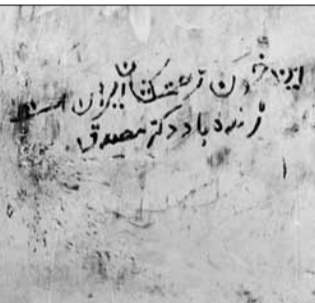 این خون زحمتکشان ایران است
زنده باد دکتر مصدق